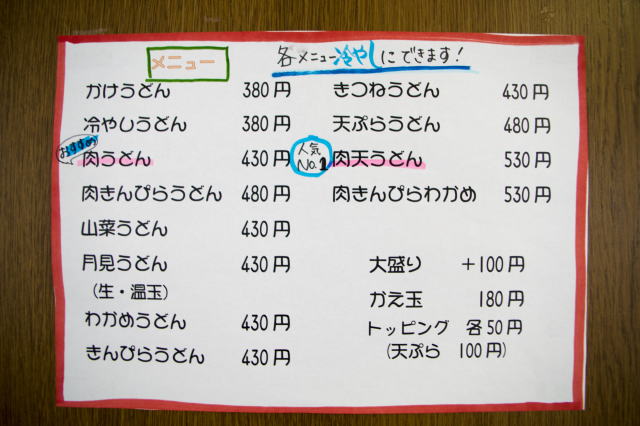 メニュー
各メニュー冷やしにできます!
かけうどん 380円
冷やしうどん 380円
おすすめ
肉うどん 430円
肉きんぴらうどん 480円
山菜うどん 430円
月見うどん 430円
(生・温玉)
わかめうどん 430円
きんぴらうどん 430円
きつねうどん 430円
天ぷらうどん 480円
人気
No.1
肉天うどん 530円
肉きんぴらわかめ 530円
大盛り +100円
かえ玉 180円
トッピング 各50円
(天ぷら 100円)